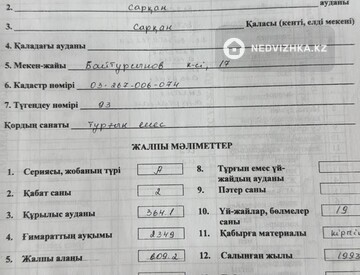 2. Сарқан ауданы
3. Сарқан Қаласы (кенті, елді мекені)
4. Қаладағы ауданы
5. Мекен-жайы Байтурсынов к-сі, 17
6. Кадастр нөмірі 03-267-006-074
7. Түгендеу нөмірі 93
Қордың санаты Тұрғын емес
NEDVIZHKA.KZ
ЖАЛПЫ МӘЛІМЕТТЕР
1. Сериясы, жобаның түрі А
8. Тұрғын емес үй-жайдың ауданы
2. Қабат саны 2
9. Пәтер саны
3. Құрылыс ауданы 364.1
10. Үй-жайлар, бөлмелер саны 19
4. Ғимараттың ауқымы 2349
11. Қабырға материалы кірпіш
5. Жалпы алаңы 609.2
12. Салынған жылы 199